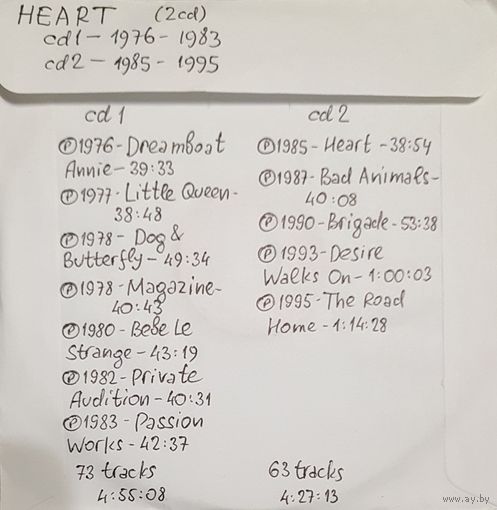 HEART (2cd)
cd1 - 1976 - 1983
cd2 - 1985 - 1995
cd 1
Ⓟ1976-Dreamboat
Annie-39:33
Ⓟ1977-Little Queen-
38:48
Ⓟ1978-Dog &
Butterfly-49:34
Ⓟ1978-Magazine-
40:43
Ⓟ1980-Bebe Le
Strange-43:19
Ⓟ1982-Private
Audition-40:31
Ⓟ1983-Passion
Works-42:37
73 tracks
4:55:08
cd 2
Ⓟ1985-Heart-38:54
Ⓟ1987-Bad Animals-
40:08
Ⓟ1990-Brigade-53:38
Ⓟ1993-Desire
Walks On-1:00:03
Ⓟ1995-The Road
Home-1:14:28
63 tracks
4:27:13
www.ay.by